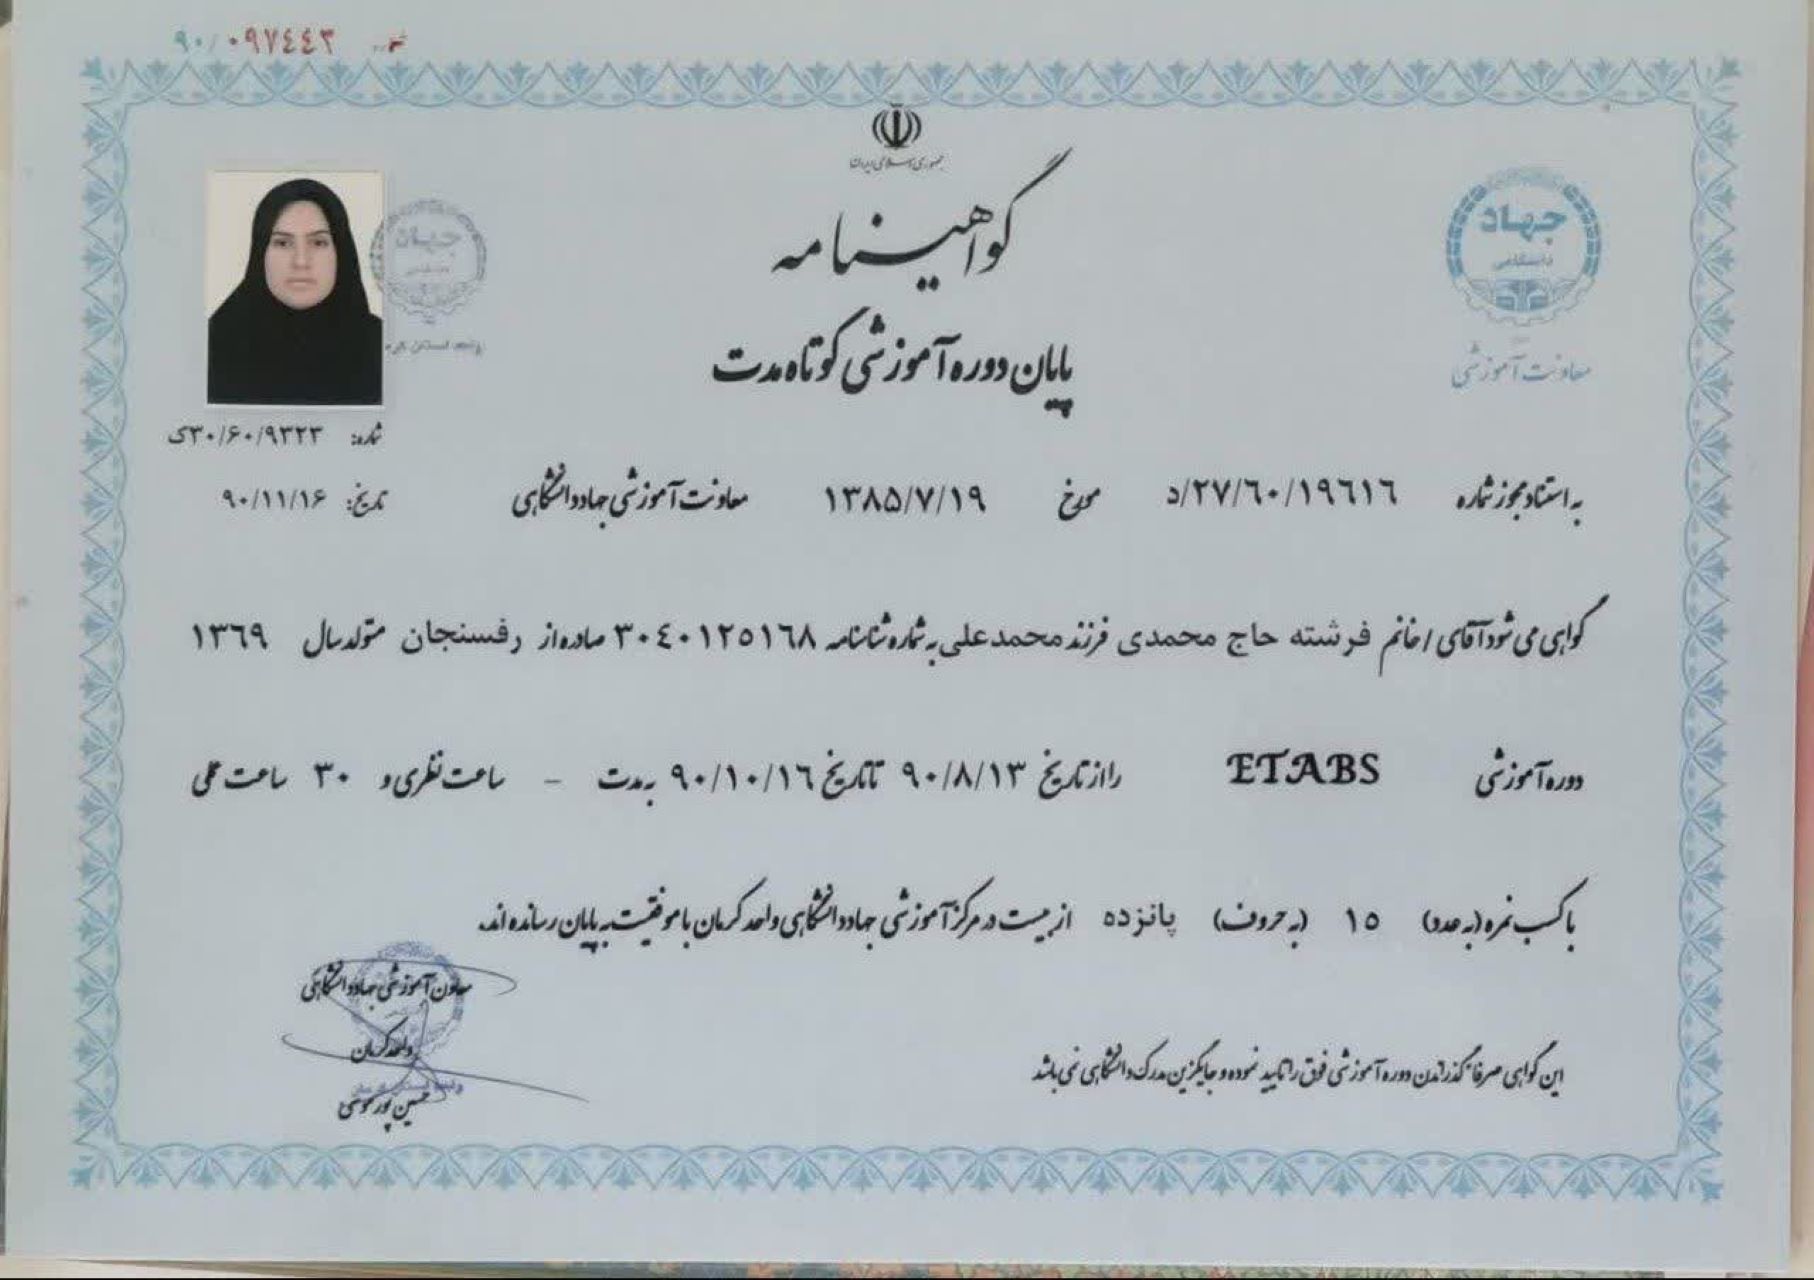 ۹۰/۰۹۷٤٤۳
جمهوری اسلامی ایران
گواهینامه
پایان دوره آموزشی کوتاه مدت
جهاد
دانشگاهی
معاونت آموزشی
جهاد
شماره: ۳۰/۶۰/۹۳۲۳ک
تاریخ: ۹۰/۱۱/۱۶
به استناد مجوز شماره ۲۷/٦۰/۱۹٦۱٦/د مورخ ۱۳۸۵/۷/۱۹ معاونت آموزشی جهاد دانشگاهی
گواهی می شود آقای / خانم فرشته حاج محمدی فرزند محمدعلی به شماره شناسنامه ۳۰٤۰۱۲۵۱٦۸ صادره از رفسنجان متولد سال ۱۳٦۹
دوره آموزشی ETABS را از تاریخ ۹۰/۸/۱۳ تا تاریخ ۹۰/۱۰/۱٦ به مدت - ساعت نظری و ۳۰ ساعت عملی
با کسب نمره (به عدد) ۱۵ (به حروف) پانزده از بیست در مرکز آموزشی جهاد دانشگاهی واحد کرمان با موفقیت به پایان رسانده اند.
معاون آموزشی جهاد دانشگاهی
واحد کرمان
حسین پورموسی
این گواهی صرفا گذراندن دوره آموزشی فوق را تایید نموده و جایگزین مدرک دانشگاهی نمی باشد